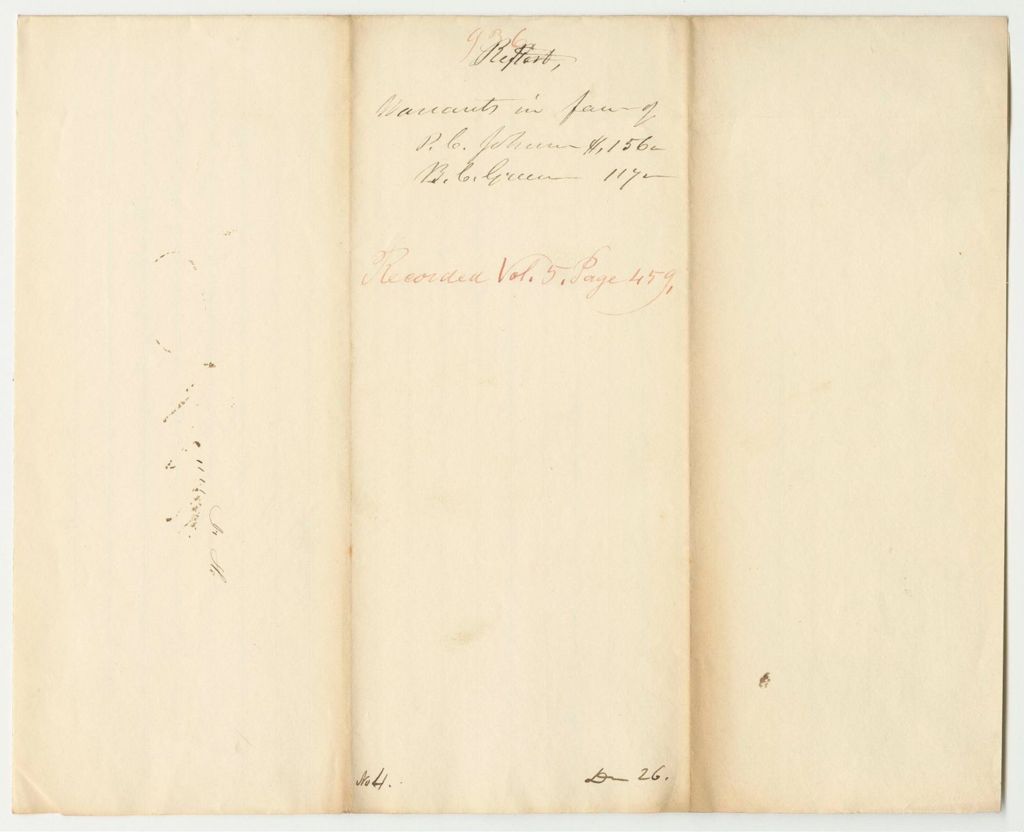 936
Report,
Warrants in favr of
P. C. Johnson $,156
B. C. Green 117
Recorded Vol. 5. Page 459,
No 4.
26.